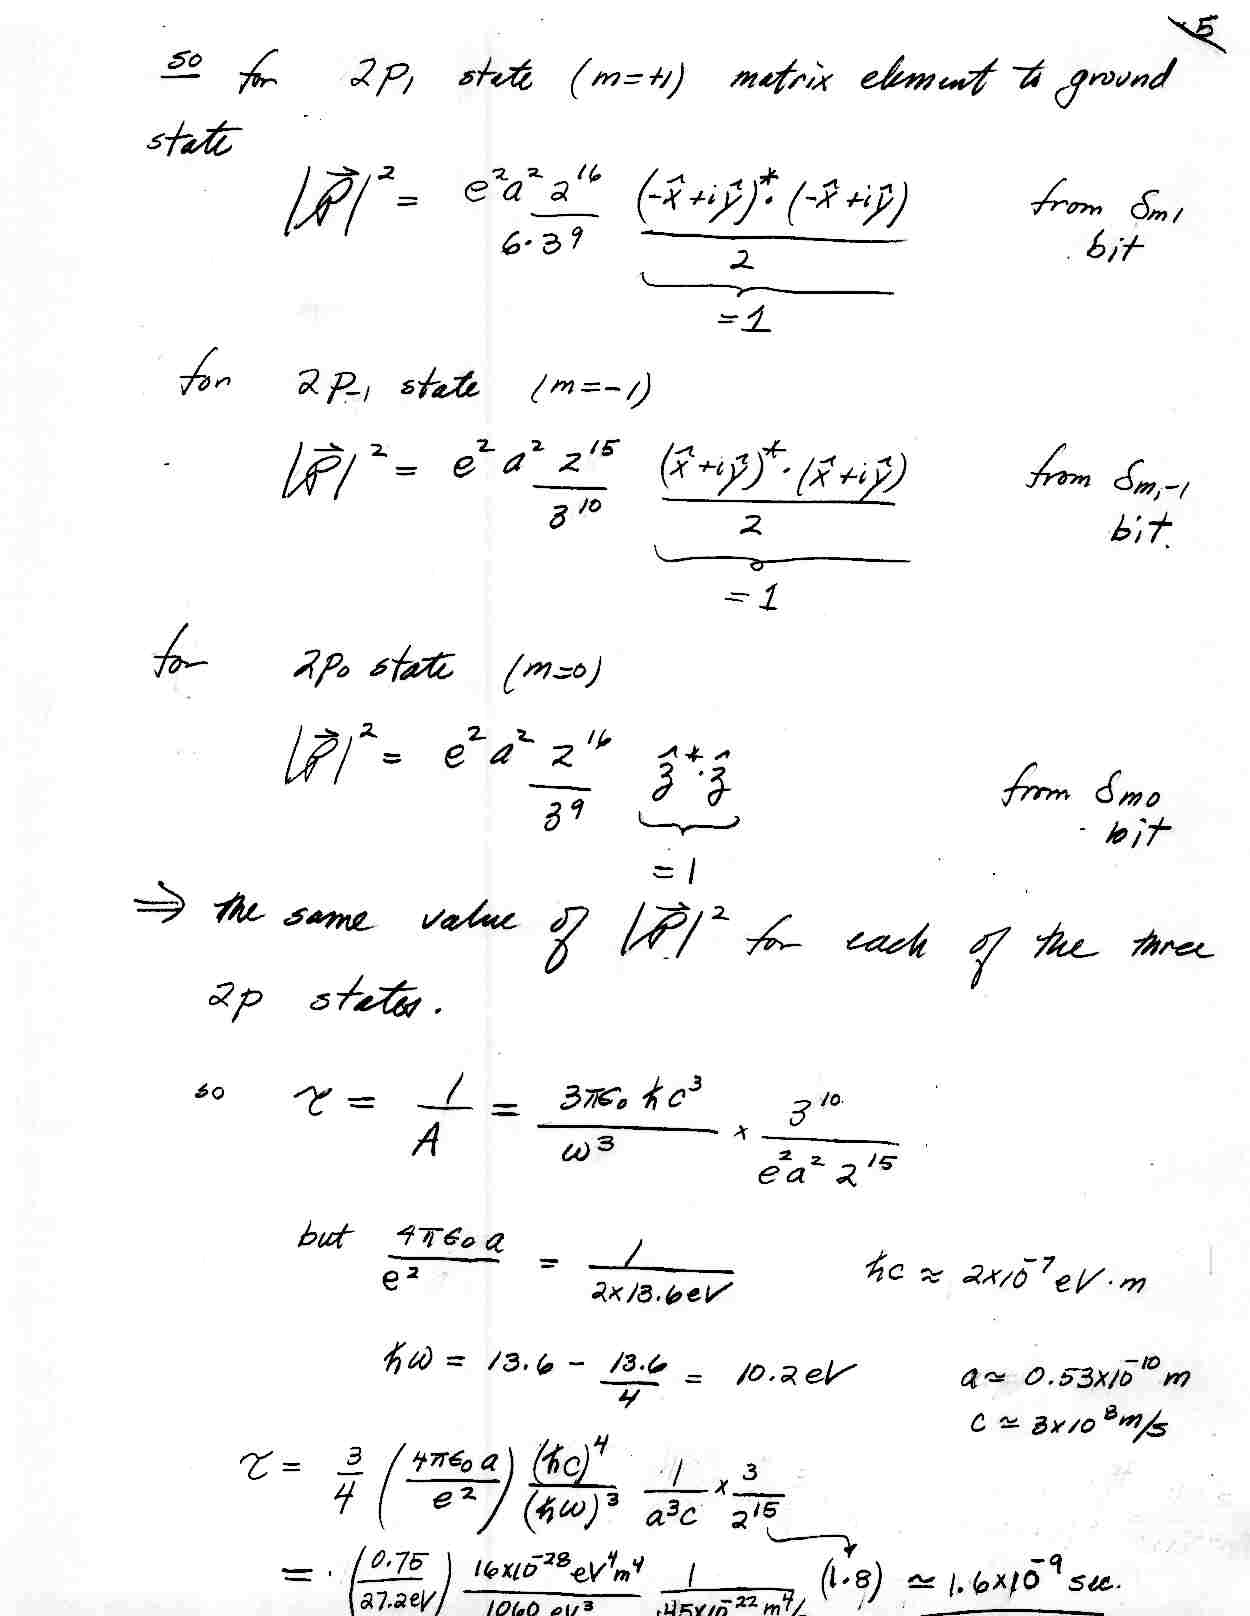 5
so for 2p₁ state (m=+1) matrix element to ground
state
|P⃗|² = e²a² 2¹⁶/6·3⁹ (-x̂+iŷ)*·(-x̂+iŷ)/2 from δm1
bit
=1
for 2P₋₁ state (m=-1)
|P⃗|² = e²a² 2¹⁵/3¹⁰ (x̂+iŷ)*·(x̂+iŷ)/2 from δm,-1
bit.
=1
for 2p₀ state (m=0)
|P⃗|² = e²a² 2¹⁶/3⁹ ẑ*·ẑ from δm0
bit
=1
⇒ the same value of |P⃗|² for each of the three
2p states.
so τ = 1/A = 3πε₀ħc³/ω³ × 3¹⁰/e²a²2¹⁵
but 4πε₀a/e² = 1/2×13.6eV ħc ≈ 2×10⁻⁷ eV·m
ħω = 13.6 - 13.6/4 = 10.2eV a≃ 0.53×10⁻¹⁰m
c ≃ 3×10⁸m/s
τ = 3/4 (4πε₀a/e²) (ħc)⁴/(ħω)³ 1/a³c × 3/2¹⁵
= (0.75/27.2eV) 16×10⁻²⁸eV⁴m⁴/1060 eV³ 1/.45×10⁻²²m⁴/ (1.8) ≃ 1.6×10⁻⁹ sec.